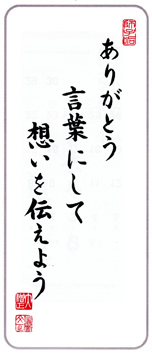 ありがとう
言葉にして
想いを伝えよう